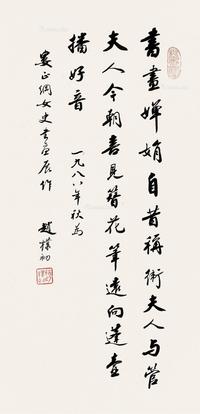 書畫嬋娟自昔稱衛夫人與管
夫人今朝喜見簪花筆遠向蓬壺
播好音
一九八八年秋為
婁正綱女史書畫展作
趙樸初